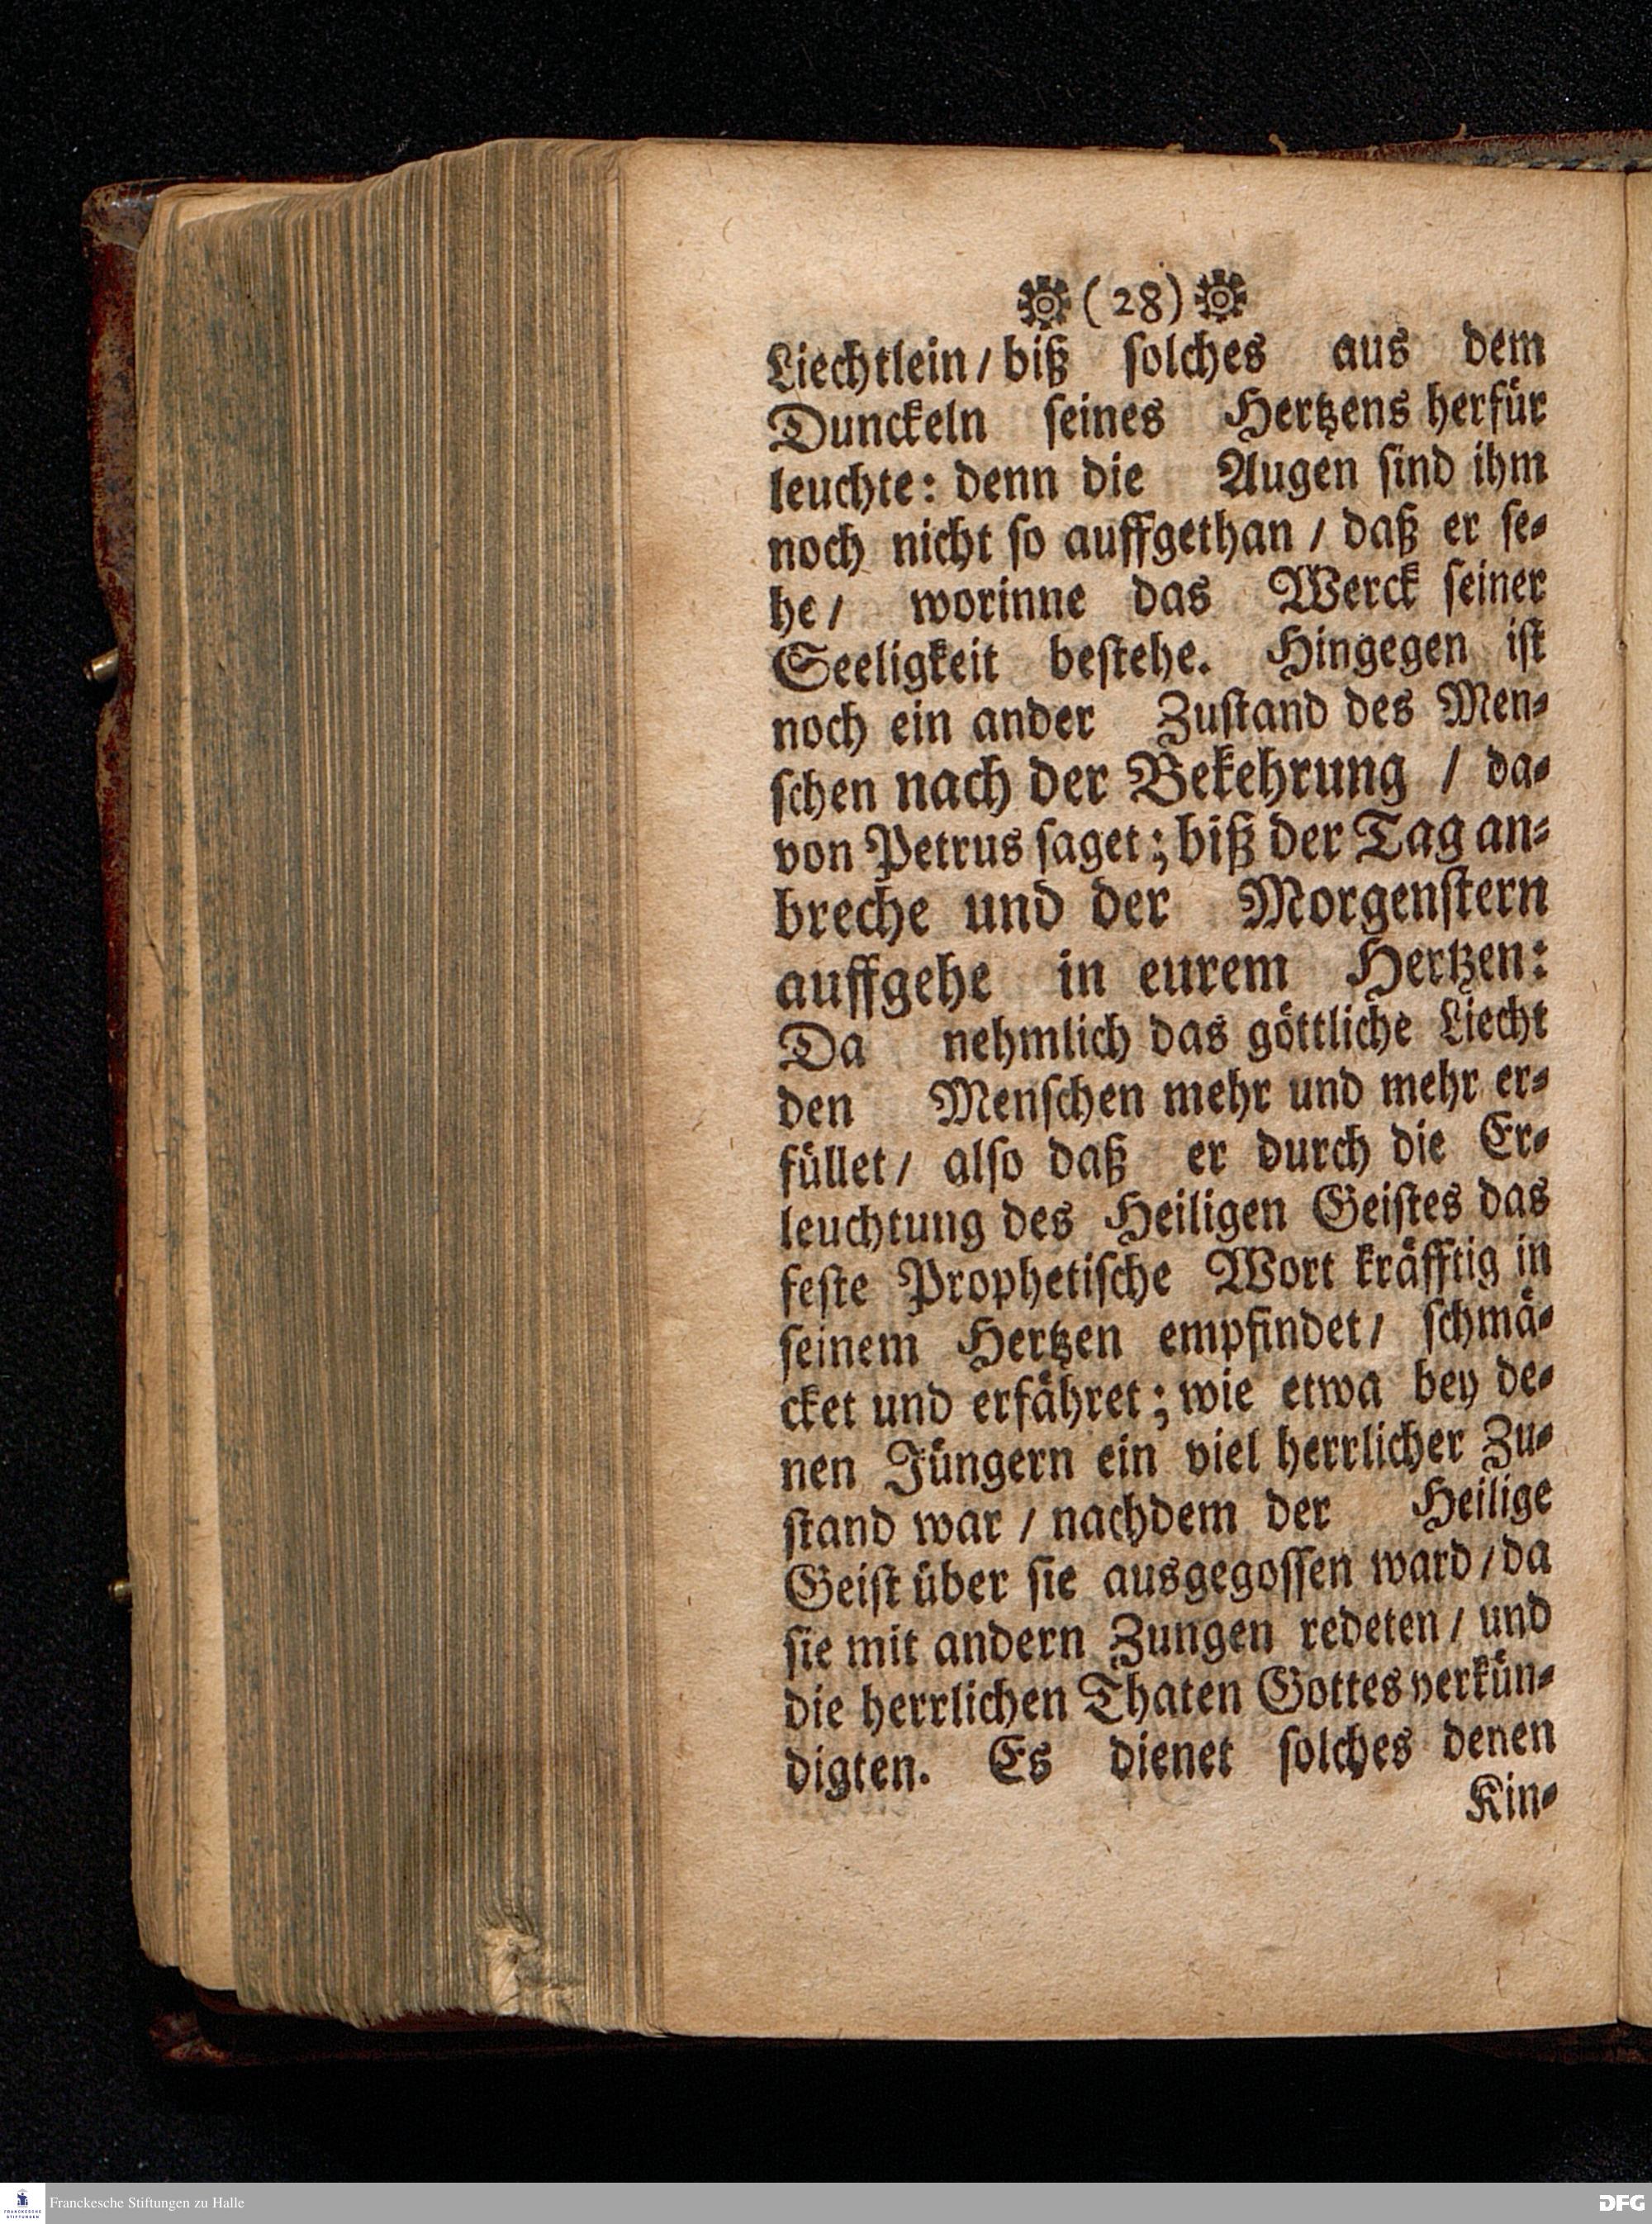 (28)
Liechtlein / biß solches aus dem
Dunckeln seines Hertzens herfür
leuchte: denn die Augen sind ihm
noch nicht so auffgethan / daß er se-
he / worinne das Werck seiner
Seeligkeit bestehe. Hingegen ist
noch ein ander Zustand des Men-
schen nach der Bekehrung / da-
von Petrus saget; biß der Tag an-
breche und der Morgenstern
auffgehe in eurem Hertzen:
Da nehmlich das göttliche Liecht
den Menschen mehr und mehr er-
füllet / also daß er durch die Er-
leuchtung des Heiligen Geistes das
feste Prophetische Wort kräfftig in
seinem Hertzen empfindet / schmä-
cket und erfähret; wie etwa bey de-
nen Jüngern ein viel herrlicher Zu-
stand war / nachdem der Heilige
Geist über sie ausgegossen ward / da
sie mit andern Zungen redeten / und
die herrlichen Thaten Gottes verkün-
digten. Es dienet solches denen
Kin-
FRANCKESCHE
STIFTUNGEN
Franckesche Stiftungen zu Halle
DFG